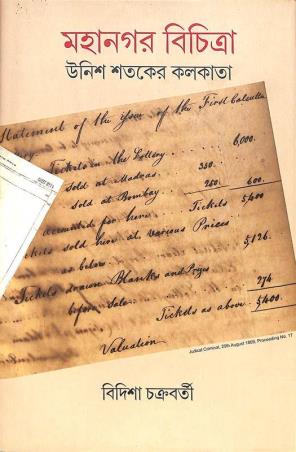 মহানগর বিচিত্রা
উনিশ শতকের কলকাতা
Statement of the issue of the First Calcutta
Tickets in the Lottery . . . 6,000.
sold at Madras . . 350.
sold at Bombay . . 250. 600.
accounted for here . . Tickets 5,400
Tickets sold here at various Prices
as below . . . 5,126.
Tickets drawn Blanks and Prizes
before sale . . . 274
Tickets as above . 5,400.
Valuation
Judicial Criminal, 25th August 1809, Proceeding No. 17
বিদিশা চক্রবর্তী